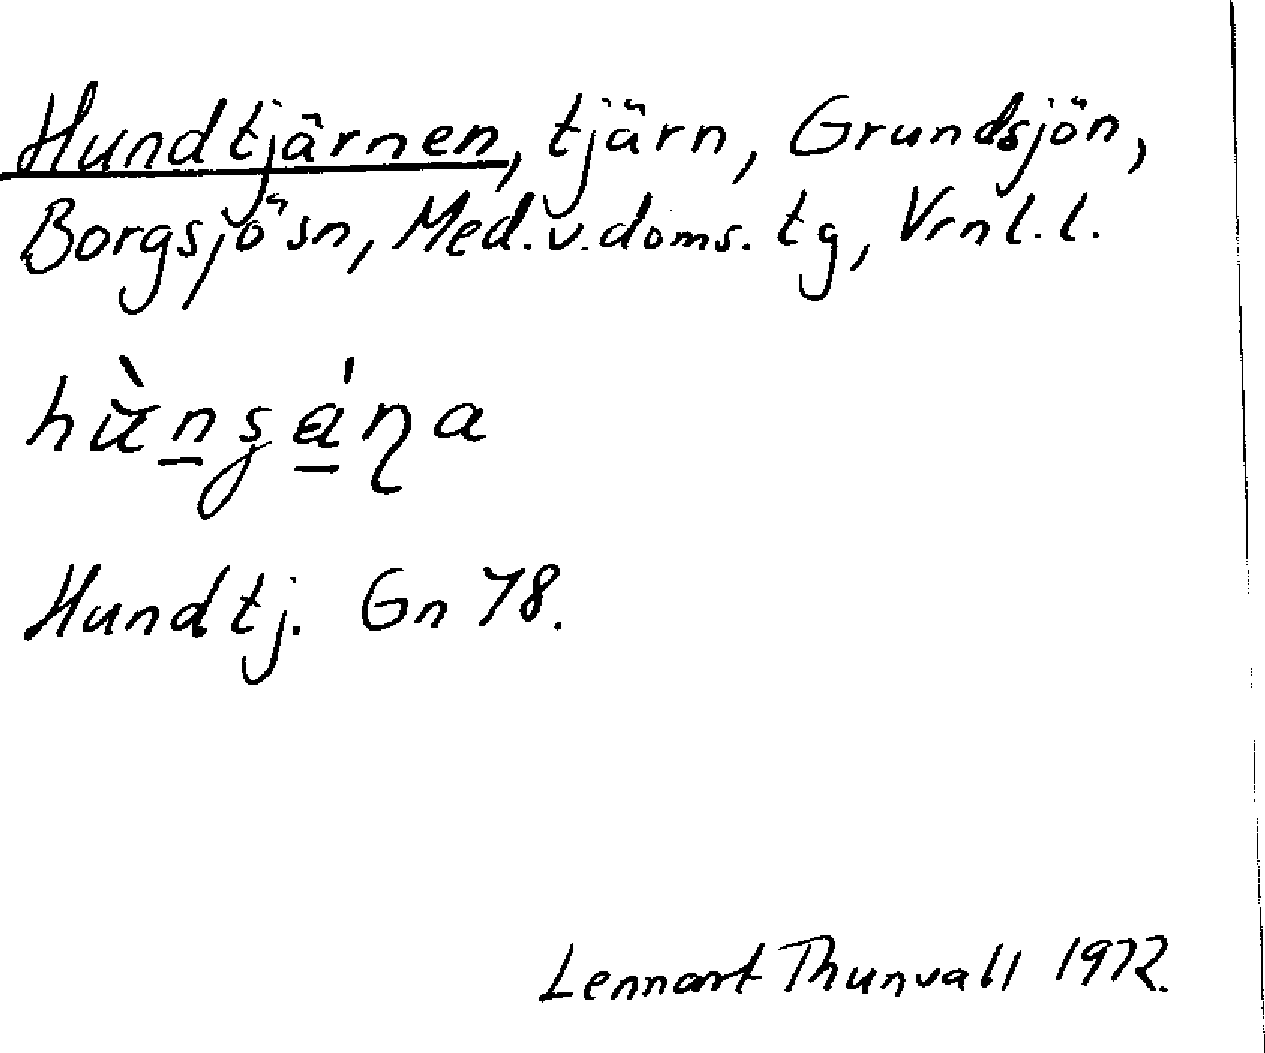 Hundtjärnen, tjärn, Grundsjön,
Borgsjö sn, Med. v. doms. tg, Vrnl. l.
Hundtj. Gn 78.
Lennart Thunvall 1972.